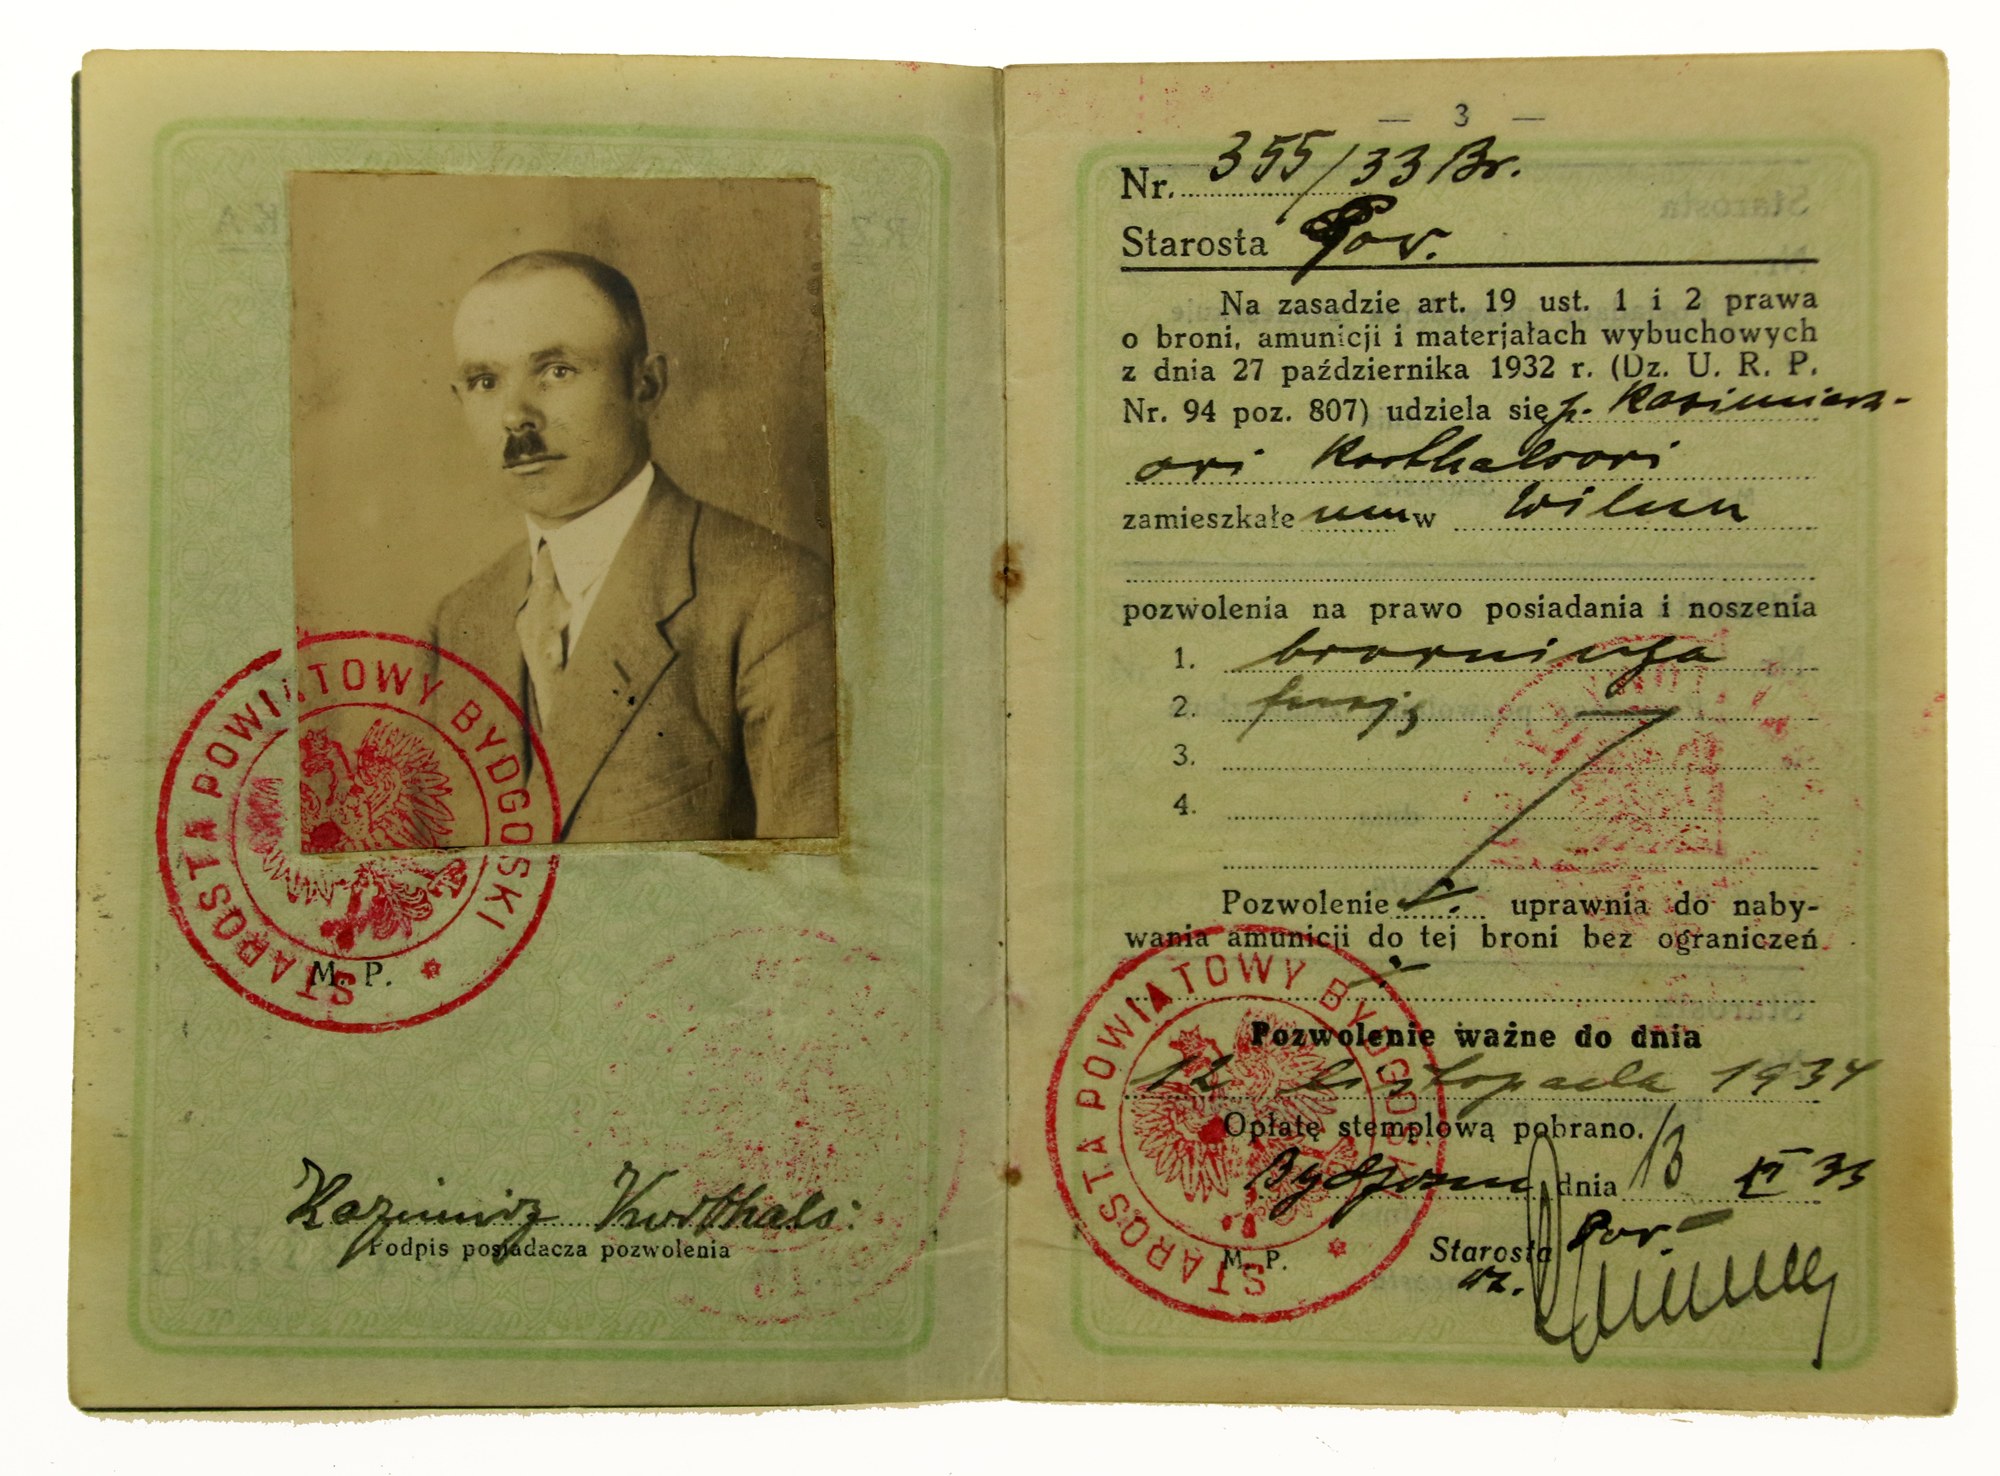 STAROSTA POWIATOWY BYDGOSKI
M. P.
Kazimierz Korthals
Podpis posiadacza pozwolenia
— 3 —
Nr. 355/33 Br.
Starosta Pow.
Na zasadzie art. 19 ust. 1 i 2 prawa
o broni, amunicji i materjałach wybuchowych
z dnia 27 października 1932 r. (Dz. U. R. P.
Nr. 94 poz. 807) udziela się p. Kazimierz-
owi Korthalsowi
zamieszkałemu w
pozwolenia na prawo posiadania i noszenia
1. browninga
2.
3.
4.
Pozwolenie uprawnia do naby-
wania amunicji do tej broni bez ograniczeń
Pozwolenie ważne do dnia
12 listopada 1934
Opłatę stemplową pobrano.
Bydgoszcz dnia 13 XI 33
STAROSTA POWIATOWY BYDGOSKI
M. P.
Starosta Pow.
wz.